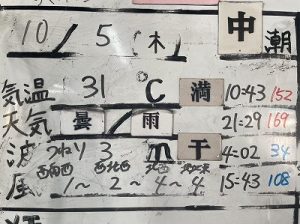 10/5(木) 中潮
気温 31 ℃ 満 10:43 152
天気 曇/雨 21:29 169
波 うねり 3 m 干 4:02 34
西南西 西北西 北西
風 1〜2〜4〜4 15:43 108